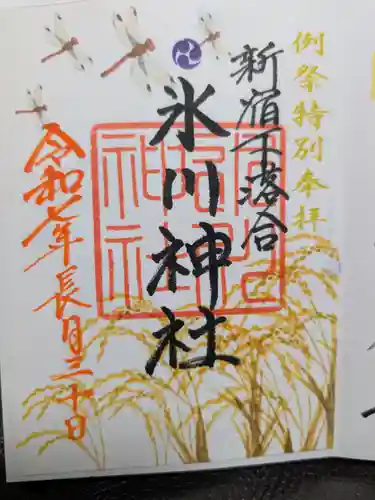 例祭特別奉拝
新宿下落合
氷川神社
令和七年長月三十日